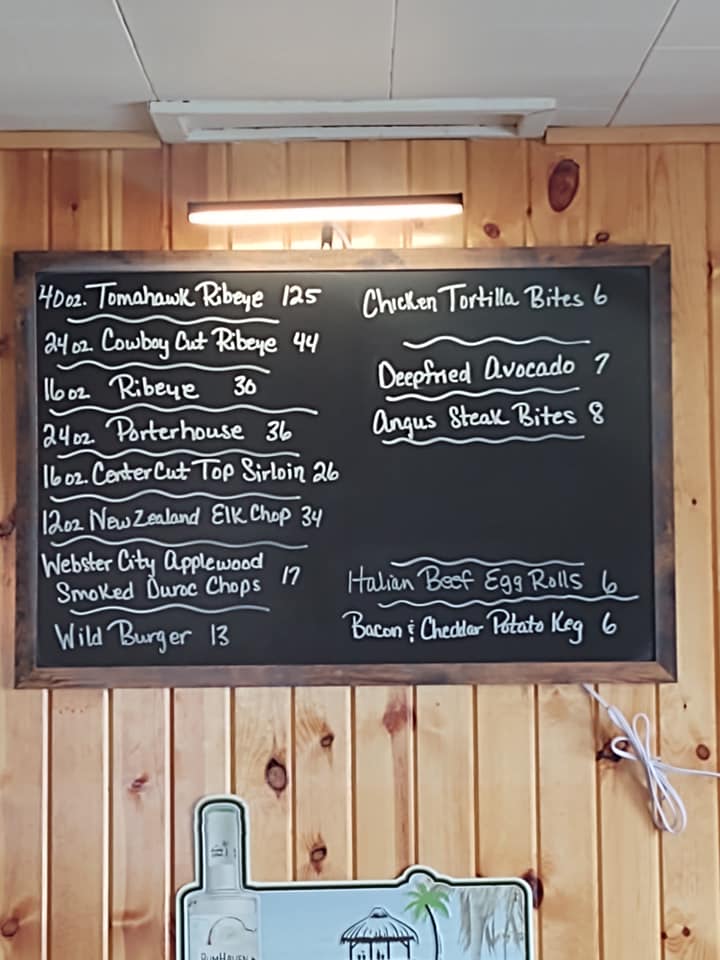 40oz. Tomahawk Ribeye 125
24oz. Cowboy Cut Ribeye 44
16oz Ribeye 30
24oz. Porterhouse 36
16oz. Center Cut Top Sirloin 26
12oz New Zealand Elk Chop 34
Webster City Applewood
Smoked Duroc Chops 17
Wild Burger 13
Chicken Tortilla Bites 6
Deepfried Avocado 7
Angus Steak Bites 8
Italian Beef Egg Rolls 6
Bacon & Cheddar Potato Keg 6
RUMHAVEN